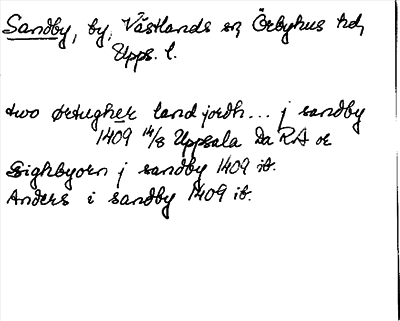 Sandby, by, Västlands sn, Örbyhus hd,
Upps. l.
two ørtugher land jordh... j sandby
1409 14/8 Uppsala Da RA or
Sighbyorn j sandby 1409 ib.
Anders i sandby 1409 ib.